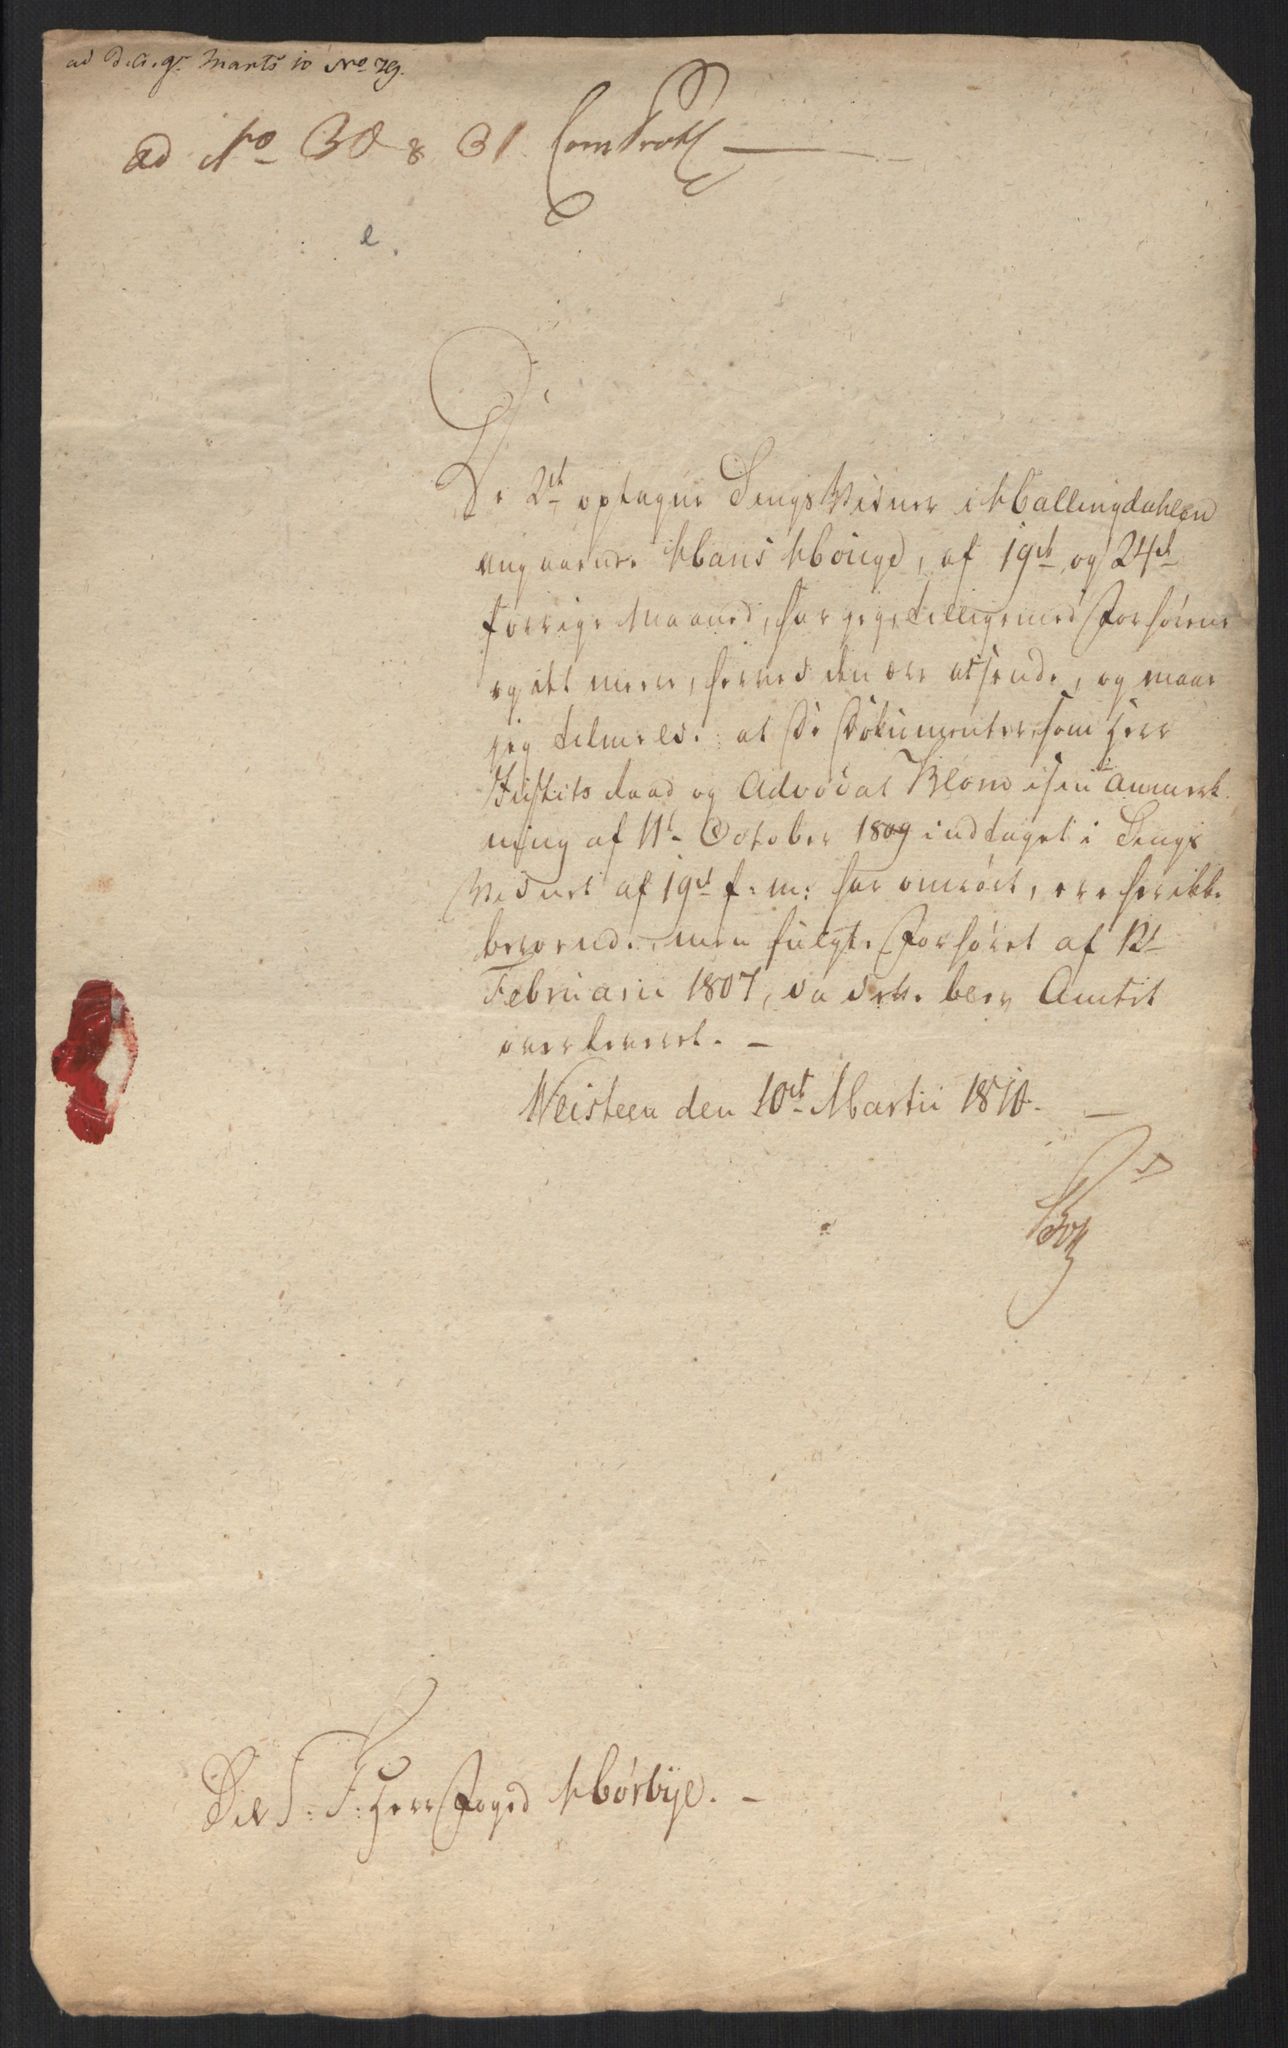 ad D. C. 9r Marts 10 No 79.
ad No 30 & 31 Com Protk
e.
De 2de optagne Tings Vidner i Hallingdahlen
angaaende Hans Houge, af 19de og 24de
forrige Maaned, har jeg, tilligemed Forhørene
og et meere, herved den ære at sende, og maae
jeg tilmelde: at De Dokumenter, som Herr
Justitsraad og Advocat Blom i sin Anmærk-
ning af 11te October 1809 indtaget i Tings
Vidnet af 19de f: m: har omrørt, ere her ikke
beroende, men fulgte Forhøret af 12te
Februarii 1807, da dette blev Amtet
overleveret. —
Neisteen den 10de Martii 1810. —
Til S: T: Herr Foged Hørbye. —